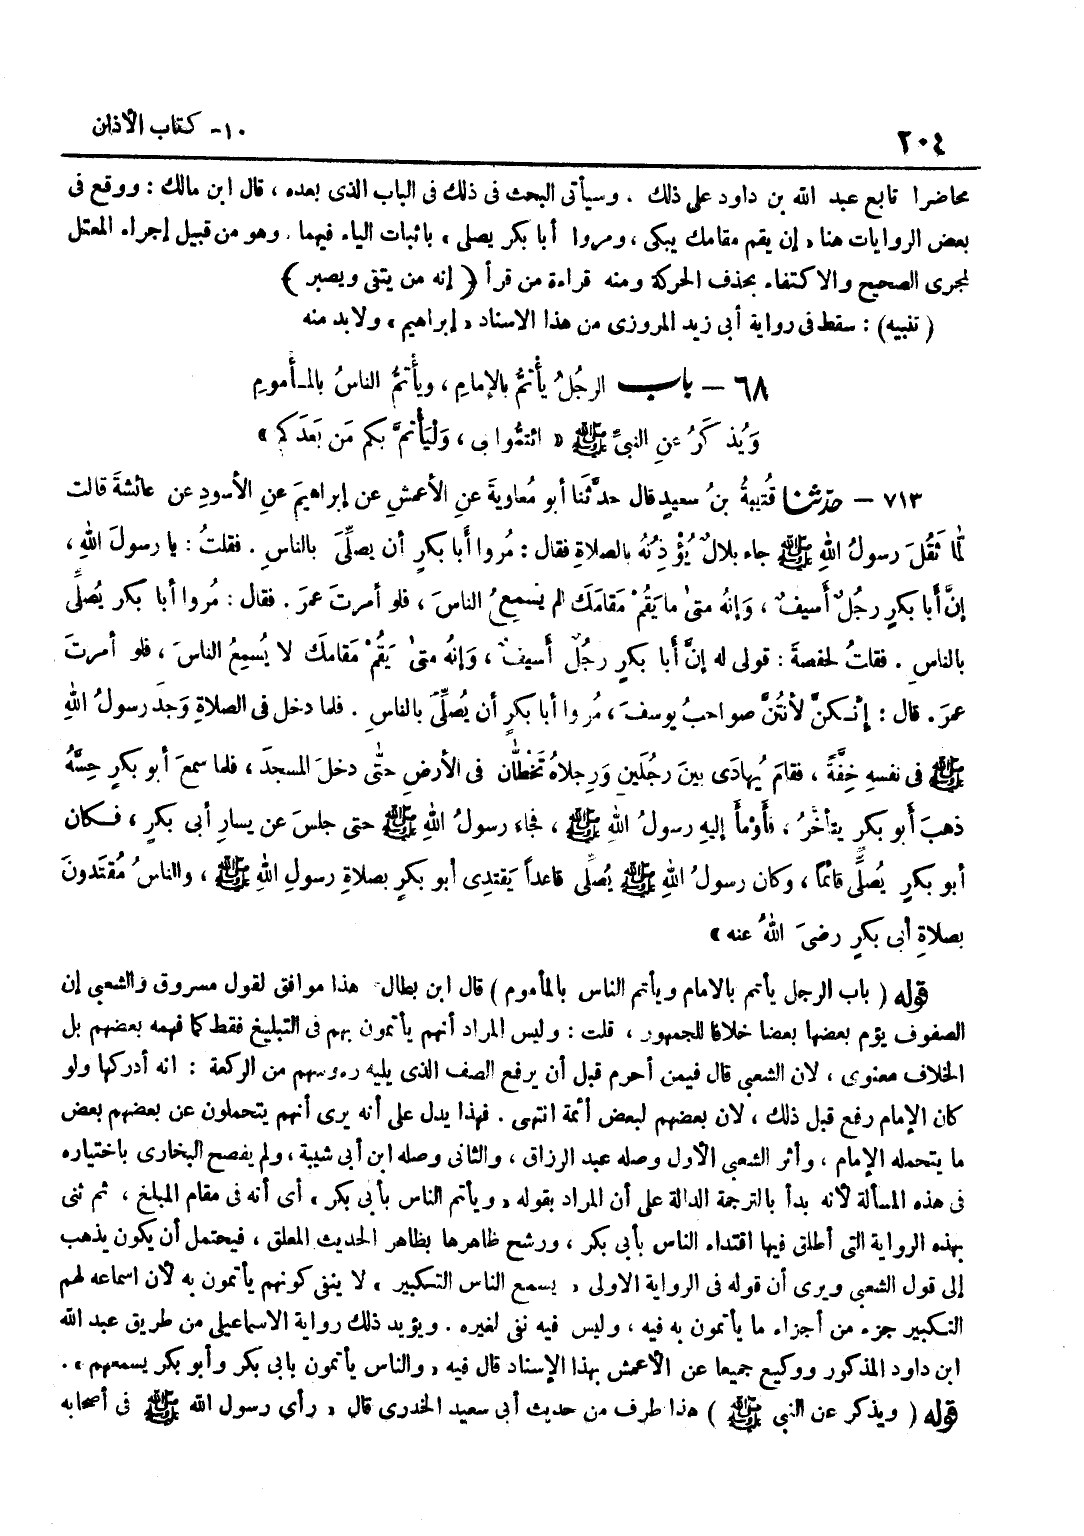 ٢٠٤
١٠- كتاب الأذان
محاضرا تابع عبد الله بن داود على ذلك . وسيأتى البحث فى ذلك فى الباب الذى بعده ، قال ابن مالك : ووقع فى
بعض الروايات هنا « إن يقم مقامك يبكى ، ومروا أبا بكر يصلى » باثبات الياء فيهما . وهو من قبيل إجراء المعتل
لمجرى الصحيح والاكتفاء بحذف الحركة ومنه قراءة من قرأ ﴿ إنه من يتقى ويصبر ﴾
( تنبيه ) : سقط فى رواية أبى زيد المروزى من هذا الاسناد « إبراهيم » ولا بد منه
٦٨ - باب الرجُلُ يأْتمُّ بالإمامِ ، ويأْتمُّ الناسُ بالمـأْمومِ
وَيُذكَرُ عنِ النبىِّ ﷺ « ائتمُّوا بى ، وَلْيَأْتمَّ بكم مَن بَعدَكم »
٧١٣ - حدّثنا قُتيبةُ بنُ سعيدٍ قال حدَّثَنا أبو مُعاويةَ عنِ الأعمشِ عن إبراهيمَ عنِ الأسودِ عن عائشةَ قالت
لمَّا ثَقُلَ رسولُ اللهِ ﷺ جاء بلالٌ يُؤْذِنُهُ بالصلاةِ فقال : مُروا أَبا بكرٍ أن يصلِّىَ بالناسِ . فقلتُ : يا رسولَ اللهِ ،
إنَّ أَبا بكرٍ رجُلٌ أَسيفٌ ، وَإنهُ متىٰ ما يَقُمْ مَقامَكَ لم يسمعِ الناسَ ، فلو أمرتَ عمرَ . فقال : مُروا أبا بكر يُصلِّى
بالناسِ . فقلتُ لحفصةَ : قولى له إنَّ أبا بكرٍ رجُلٌ أَسيفٌ ، وَإنهُ متىٰ يَقُمْ مَقامَك لا يُسمِعُ الناسَ ، فلو أمرتَ
عمرَ . قال : إنَّـكنَّ لأنتُنَّ صواحبُ يوسفَ ، مُروا أبا بكرٍ أن يُصلِّىَ بالناسِ . فلما دخل فى الصلاةِ وَجدَ رسولُ اللهِ
ﷺ فى نفسهِ خِفَّةً ، فقامَ يُهادَى بينَ رجُلَينِ وَرِجلاهُ تَخُطَّان فى الأرضِ حتَّى دخلَ المسجدَ ، فلما سمعَ أبو بكرٍ حِسَّهُ
ذهبَ أَبو بكرٍ يتأخَّرُ ، فأَوْمأَ إليهِ رسولُ اللهِ ﷺ ، فجاء رسولُ اللهِ ﷺ حتى جلسَ عن يسارِ أبى بكرٍ ، فـكان
أبو بكرٍ يُصلِّى قائمًا ، وكان رسولُ اللهِ ﷺ يُصلِّى قاعداً يَقتدِى أبو بكرٍ بصلاةِ رسولِ اللهِ ﷺ ، والناسُ مُقتَدونَ
بصلاةِ أبى بكرٍ رضىَ اللهُ عنه »
قوله ( باب الرجل يأتم بالامام ويأتم الناس بالمأموم ) قال ابن بطال هذا موافق لقول مسروق والشعبى إن
الصفوف يؤم بعضها بعضا خلافا للجمهور ، قلت : وليس المراد أنهم يأتمون بهم فى التبليغ فقط كما فهمه بعضهم بل
الخلاف معنوى ، لان الشعبى قال فيمن أحرم قبل أن يرفع الصف الذى يليه رءوسهم من الركعة : انه أدركها ولو
كان الإمام رفع قبل ذلك ، لان بعضهم لبعض أئمة انتهى . فهذا يدل على أنه يرى أنهم يتحملون عن بعضهم بعض
ما يتحمله الإمام ، وأثر الشعبى الأول وصله عبد الرزاق ، والثانى وصله ابن أبى شيبة ، ولم يفصح البخارى باختياره
فى هذه المسألة لأنه بدأ بالترجمة الدالة على أن المراد بقوله « ويأتم الناس بأبى بكر » أى أنه فى مقام المبلغ ، ثم ثنى
بهذه الرواية التى أطلق فيها اقتداء الناس بأبى بكر ، ورشح ظاهرها بظاهر الحديث المعلق ، فيحتمل أن يكون يذهب
إلى قول الشعبى ويرى أن قوله فى الرواية الاولى « يسمع الناس التـكبير » لا ينفى كونهم يأتمون به لأن اسماعه لهم
التـكبير جزء من أجزاء ما يأتمون به فيه ، وليس فيه نفى لغيره . ويؤيد ذلك رواية الاسماعيلى من طريق عبد الله
ابن داود المذكور ووكيع جميعا عن الأعمش بهذا الإسناد قال فيه « والناس يأتمون بابى بكر وأبو بكر يسمعهم » .
قوله ( ويذكر عن النبى ﷺ ) هذا طرف من حديث أبى سعيد الخدرى قال « رأى رسول الله ﷺ فى أصحابه